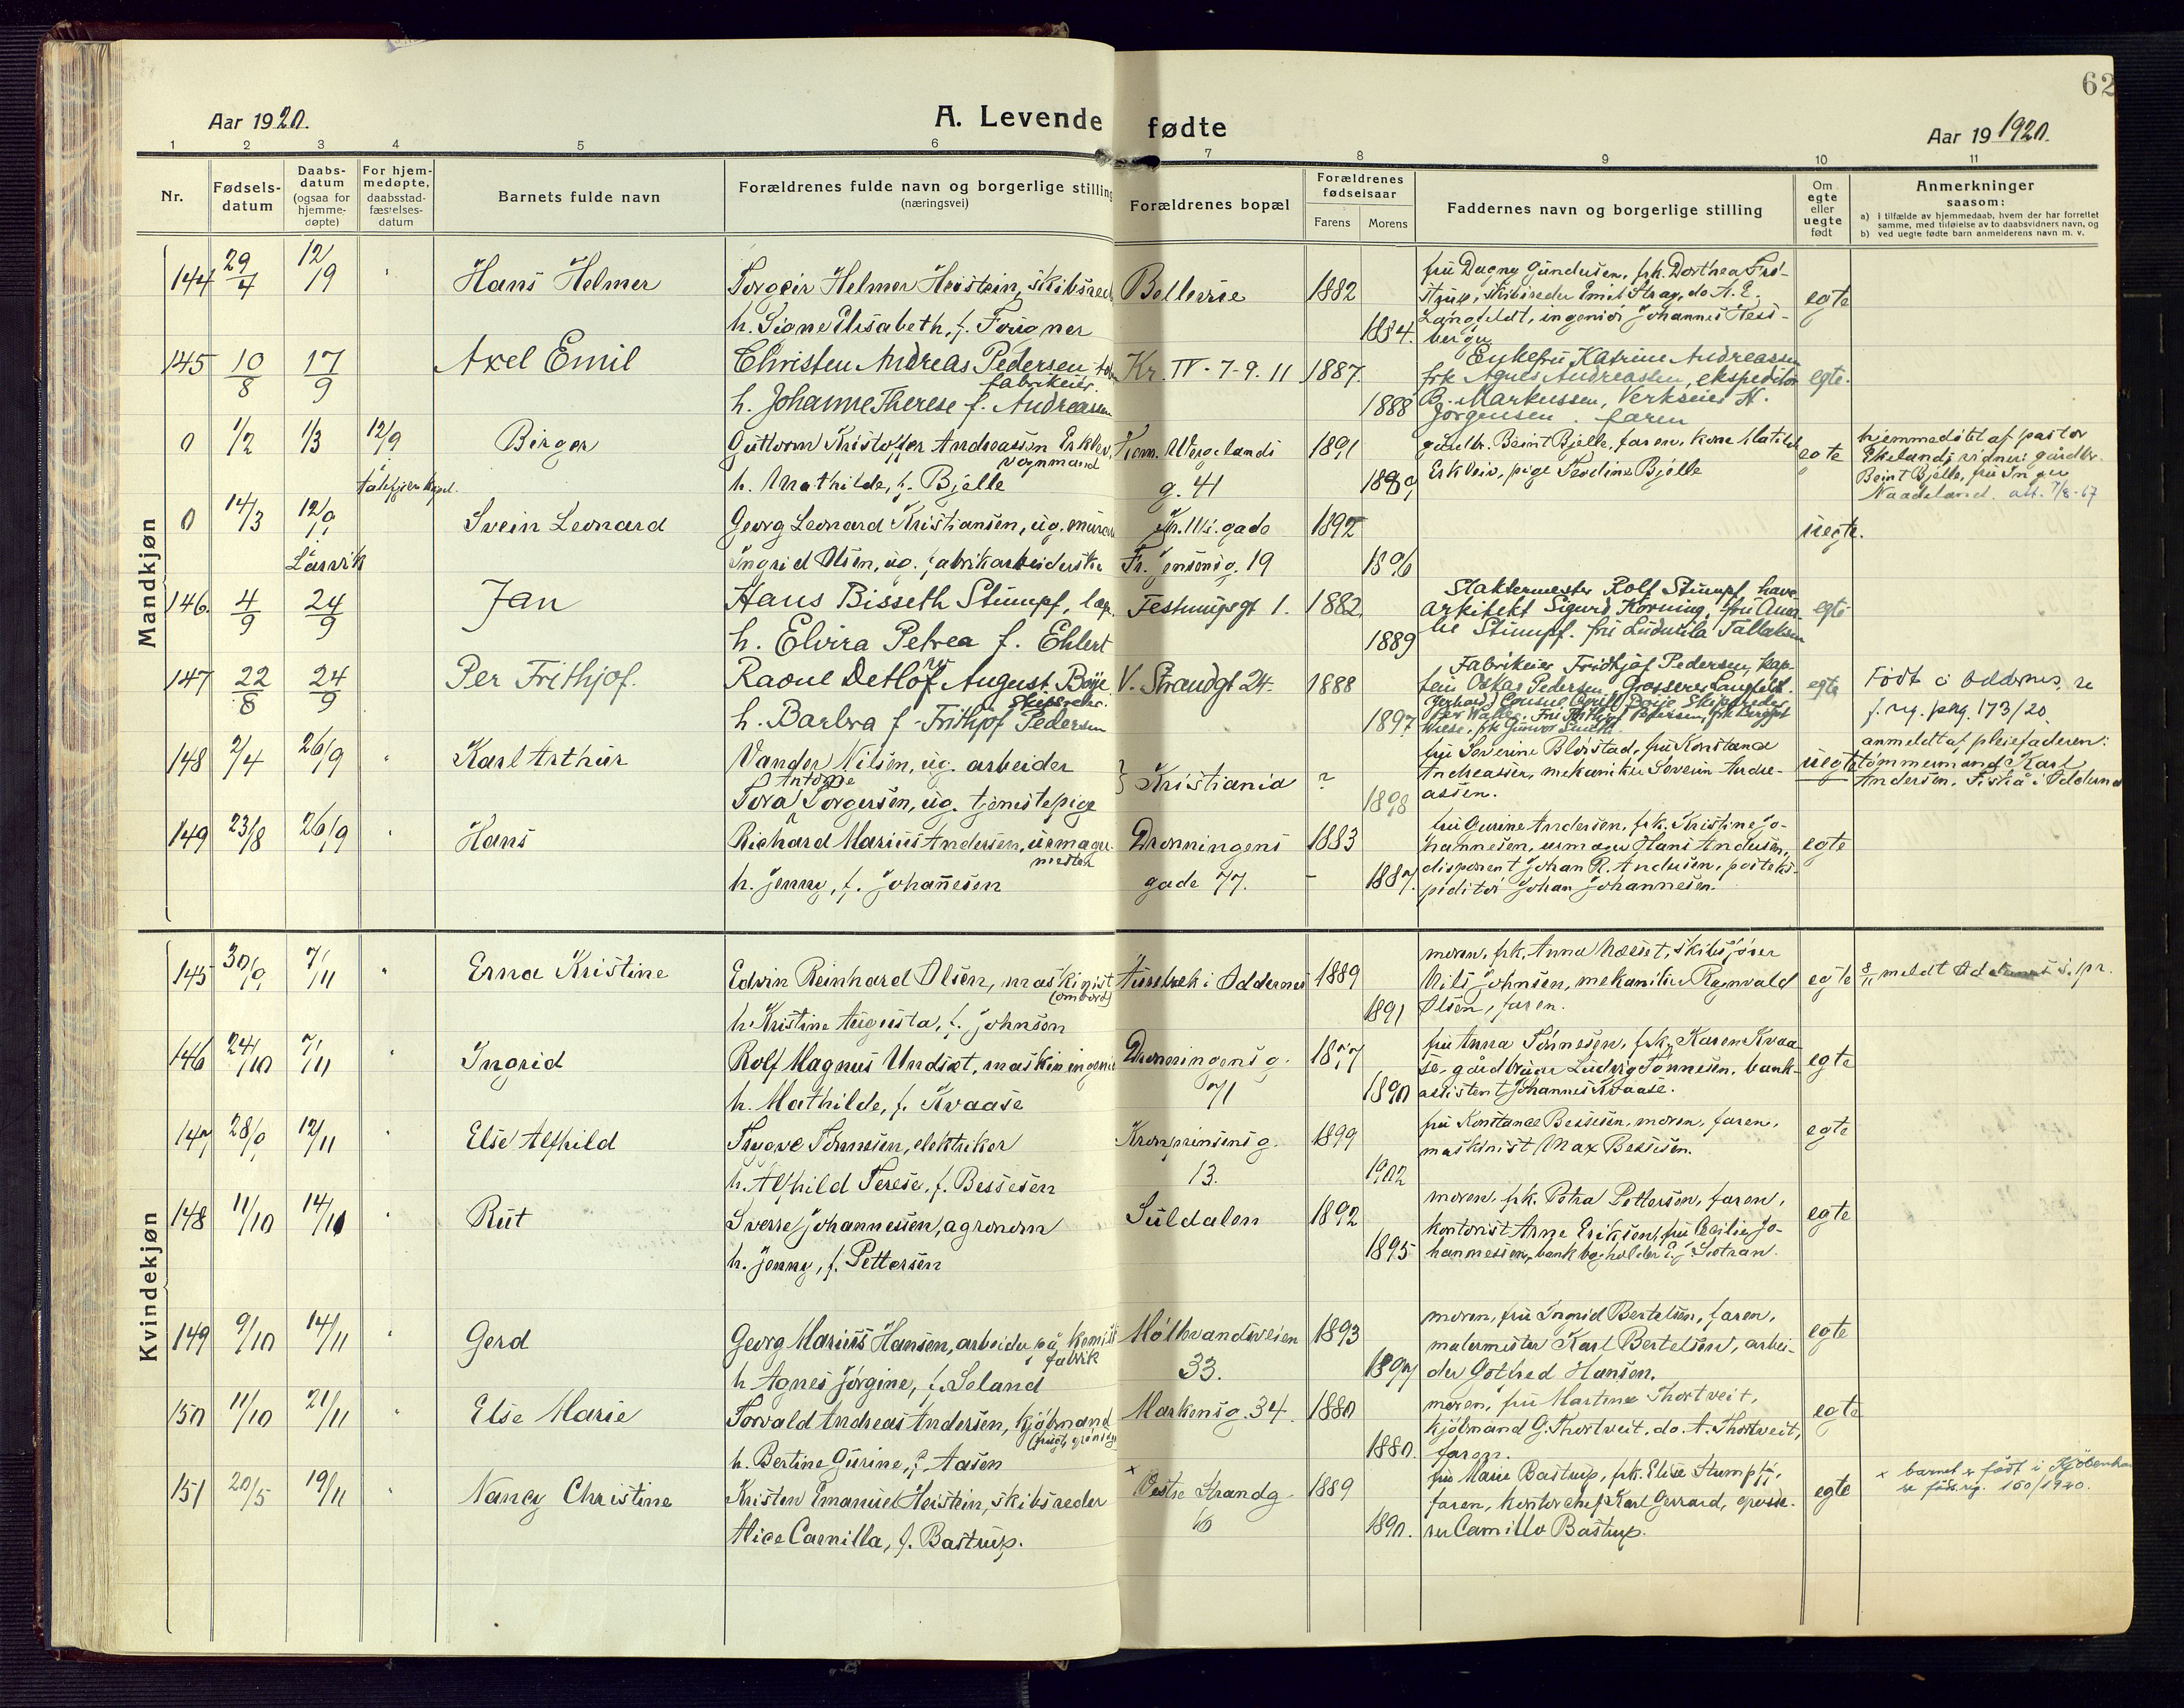 62
Aar 1920.
A. Levende fødte
Aar 19 1920.
1 2 3 4 5 6 7 8 9 10 11
Nr.
Fødsels-
datum
Daabs-
datum
(ogsaa for
hjemme-
døpte)
For hjem-
medøpte,
daabsstad-
fæstelses-
datum
Barnets fulde navn
Forældrenes fulde navn og borgerlige stilling
(næringsvei)
Forældrenes bopæl
Forældrenes
fødselsaar
Farens Morens
Faddernes navn og borgerlige stilling
Om
egte
eller
uegte
født
Anmerkninger
saasom:
a) i tilfælde av hjemmedaab, hvem der har forrettet
samme, med tilføielse av to daabsvidners navn, og
b) ved uegte fødte barn anmelderens navn m. v.
Mandkjøn
144 29/4 12/9 " Hans Helmer
Torgeir Helmer Heistein, skibsred
h. Signe Elisabeth, f. Fougner
Bellevue 1882 1884.
fru Dagny Gundersen, frk. Dorthea Frø-
strup, skibsreder Emil Stray, do. A. E.
Langfeldt, ingeniør Johannes Hess-
berg.
egte
145 10/8 17/9 Axel Emil
Christen Andreas Pedersen
fabrikeier.
h. Johanne Therese f. Andreassen
Kr. IV. 7-9. 11 1887. 1888
Enkefru Katrine Andreassen
frk Agnes Andreassen, ekspeditør
B. Markussen, Verkseier H.
Jørgensen. faren
egte.
0 1/2 1/3 12/9 Birger
Guttorm Kristoffer Andreassen Erkleiv,
vognmand
h. Mathilde, f. Bjelle
Hem. Wergelands
g. 41
1891 1889
gårdbr. Beint Bjelle, faren, kone Matilde
Erkleiv, pige Tesdine Bjelle
egte
hjemmedøbt af pastor
Ekeland; vidner: gårdbr.
Beint Bjelle, fru Inger
Naadeland. att. 7/8-67
0 14/3 12/9 Svein Leonard
Larvik
Georg Leonard Kristiansen, ug. murer
Ingrid Olsen, ug. fabrikarbeiderske
gade
Fr. Jensensg. 19
1892 1896
uegte.
146. 4/9 24/9 Jan
Hans Bisseth Stumpf, læge.
h. Elvira Petrea f. Ehlert
Festningsgt 1. 1882. 1889
Slaktermester Rolf Stumpf, have
arkitekt Sigurd Korning, fru Ama
lie Stumpf. fru Ludmila Tallaksen
egte
147 22/8 24/9 Per Frithjof.
Raoul Detlof August Boije
Skibsreder.
h. Barbra f. Frithjof Pedersen
V. Strandgt 24. 1888 1897
Fabrikeier Fridthjof Pedersen, kap-
tein Oskar Pedersen, Grosserer Langfeldt.
egte
Født i Oddernes, se
f. reg. pag. 173/20.
148 2/4 26/9 " Karl Arthur
Vander Nilsen, ug. arbeider
Antonie
Tora Torgersen, ug. tjenestepige
Kristiania ? 1898
fru Severine Blørstad, fru Konstance
Andreassen, mekaniker Severin Andre-
assen.
uegte
anmeldt af pleiefaderen:
tømmermand Karl
Andersen, Fiskå i Oddernes
149 23/8 26/9 " Hans
Richard Marius Andersen, urmager-
mester
h. Jenny, f. Johannesen
Dronningens
gade 77.
1883 1887.
fru Gurine Andersen, frk. Kristine Jo-
hannesen, urmager Hans Andersen,
disponent Johan R. Andersen, posteks-
peditør Johan Johannesen.
egte
Kvindekjøn
145 30/9 7/11 " Erna Kristine
Edvin Reinhard Olsen, maskinist
(ombord)
h. Kristine Augusta, f. Johnsen
i Oddernes 1889 1891
moren, frk. Anna Næsset, skibsfører
Nils Johnsen, mekaniker Ragnvald
Olsen, faren.
egte
8/11 meldt Oddernes s. pr.
146 24/10 7/11 " Ingrid
Rolf Magnus Undset, maskiningeniør
h. Mathilde, f. Kvaase
Dronningensg.
71
1877 1890
fru Anna Tønnesen, frk. Karen Kvaa-
se, gårdbruger Ludvig Tønnesen, bank-
assistent Johannes Kvaase.
egte
147 28/9 12/11 " Else Alfhild
Trygve Tønnesen, elektriker
h. Alfhild Terese, f. Bessesen
Kronprinsensg.
13.
1899 1902
fru Konstance Bessesen, moren, faren,
maskinist Max Bessesen.
egte
148 11/10 14/11 " Rut
Sverre Johannessen, agronom
h. Jenny, f. Pettersen
Suldalen 1892 1895
moren, frk. Petra Pettersen, faren,
kontorist Arne Eriksen, fru Cecilie Jo-
hannessen, bankbogholder
egte
149 9/10 14/11 " Gerd
Georg Marius Hansen, arbeider på kemisk
fabrik
h. Agnes Jørgine, f. Seland
Møllevandsveien
33.
1893 1897
moren, fru Ingrid Bertelsen, faren,
malermester Karl Bertelsen, arbei-
der Gothred Hansen.
egte
150 11/10 21/11 " Else Marie
Torvald Andreas Andersen, kjøbmand
h. Bertine Gurine, f. Aasen
Markensg. 34. 1880 1880.
moren, fru Martine Thortveit,
kjøbmand G. Thortveit, do. A. Thortveit,
faren.
egte
151 20/5 19/11 " Nancy Christine
Kristen Emanuel Heistein, skibsreder
Alice Camilla, f. Bastrup.
x Østre Strandg.
10
1889 1890.
fru Marie Bastrup, frk. Elise Stumpf,
faren, kontorchef Karl Gerrard, grosse-
rer Camillo Bastrup.
egte
x barnet er født i Kjøbenhavn
se føds.reg. 160/1920.